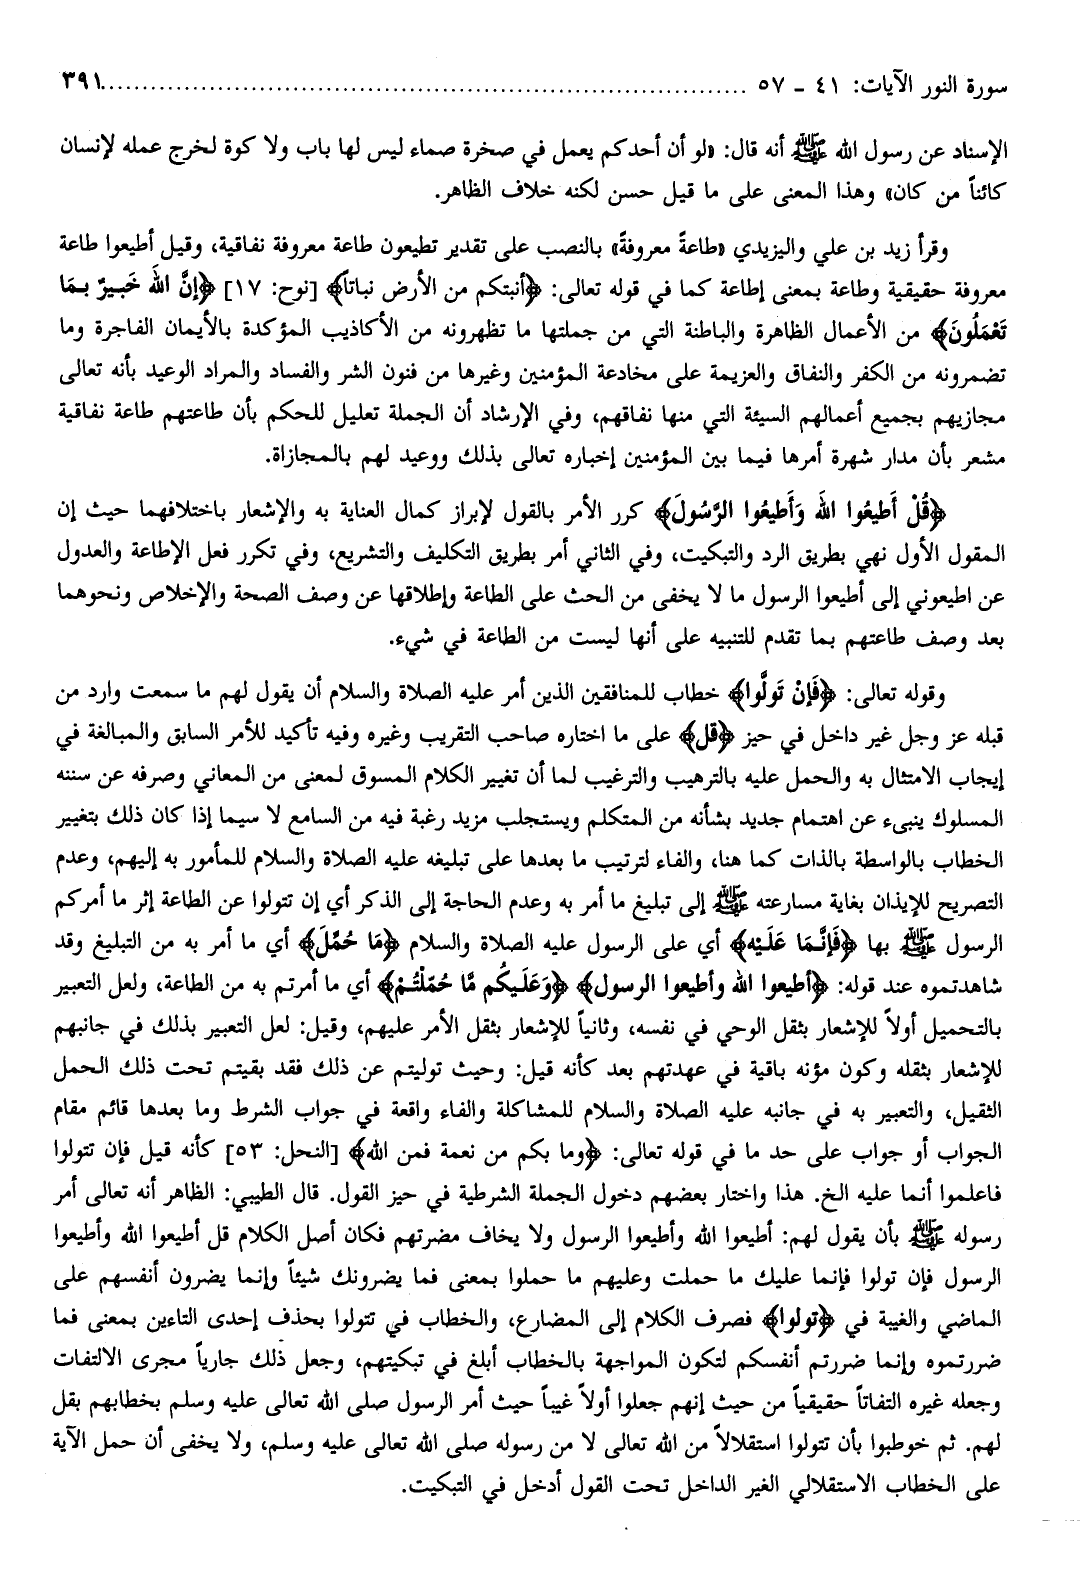 سورة النور الآيات: ٤١ - ٥٧ ........................................................................... ٣٩١
الإسناد عن رسول الله ﷺ أنه قال: «لو أن أحدكم يعمل في صخرة صماء ليس لها باب ولا كوة لخرج عمله لإنسان
كائناً من كان» وهذا المعنى على ما قيل حسن لكنه خلاف الظاهر.
وقرأ زيد بن علي واليزيدي «طاعةً معروفةً» بالنصب على تقدير تطيعون طاعة معروفة نفاقية، وقيل أطيعوا طاعة
معروفة حقيقية وطاعة بمعنى إطاعة كما في قوله تعالى: ﴿أنبتكم من الأرض نباتاً﴾ [نوح: ١٧] ﴿إنَّ اللهَ خَبِيرٌ بِمَا
تَعْمَلُونَ﴾ من الأعمال الظاهرة والباطنة التي من جملتها ما تظهرونه من الأكاذيب المؤكدة بالأيمان الفاجرة وما
تضمرونه من الكفر والنفاق والعزيمة على مخادعة المؤمنين وغيرها من فنون الشر والفساد والمراد الوعيد بأنه تعالى
مجازيهم بجميع أعمالهم السيئة التي منها نفاقهم، وفي الإرشاد أن الجملة تعليل للحكم بأن طاعتهم طاعة نفاقية
مشعر بأن مدار شهرة أمرها فيما بين المؤمنين إخباره تعالى بذلك ووعيد لهم بالمجازاة.
﴿قُلْ أَطِيعُوا اللهَ وَأَطِيعُوا الرَّسُولَ﴾ كرر الأمر بالقول لإبراز كمال العناية به والإشعار باختلافهما حيث إن
المقول الأول نهي بطريق الرد والتبكيت، وفي الثاني أمر بطريق التكليف والتشريع، وفي تكرر فعل الإطاعة والعدول
عن اطيعوني إلى أطيعوا الرسول ما لا يخفى من الحث على الطاعة وإطلاقها عن وصف الصحة والإخلاص ونحوهما
بعد وصف طاعتهم بما تقدم للتنبيه على أنها ليست من الطاعة في شيء.
وقوله تعالى: ﴿فَإنْ تَولَّوا﴾ خطاب للمنافقين الذين أمر عليه الصلاة والسلام أن يقول لهم ما سمعت وارد من
قبله عز وجل غير داخل في حيز ﴿قل﴾ على ما اختاره صاحب التقريب وغيره وفيه تأكيد للأمر السابق والمبالغة في
إيجاب الامتثال به والحمل عليه بالترهيب والترغيب لما أن تغيير الكلام المسوق لمعنى من المعاني وصرفه عن سننه
المسلوك ينبىء عن اهتمام جديد بشأنه من المتكلم ويستجلب مزيد رغبة فيه من السامع لا سيما إذا كان ذلك بتغيير
الخطاب بالواسطة بالذات كما هنا، والفاء لترتيب ما بعدها على تبليغه عليه الصلاة والسلام للمأمور به إليهم، وعدم
التصريح للإيذان بغاية مسارعته ﷺ إلى تبليغ ما أمر به وعدم الحاجة إلى الذكر أي إن تتولوا عن الطاعة إثر ما أمركم
الرسول ﷺ بها ﴿فَإنَّمَا عَلَيْه﴾ أي على الرسول عليه الصلاة والسلام ﴿مَا حُمِّلَ﴾ أي ما أمر به من التبليغ وقد
شاهدتموه عند قوله: ﴿أطيعوا الله وأطيعوا الرسول﴾ ﴿وَعَلَيكُم مَّا حُمّلْتُمْ﴾ أي ما أمرتم به من الطاعة، ولعل التعبير
بالتحميل أولاً للإشعار بثقل الوحي في نفسه، وثانياً للإشعار بثقل الأمر عليهم، وقيل: لعل التعبير بذلك في جانبهم
للإشعار بثقله وكون مؤنه باقية في عهدتهم بعد كأنه قيل: وحيث توليتم عن ذلك فقد بقيتم تحت ذلك الحمل
الثقيل، والتعبير به في جانبه عليه الصلاة والسلام للمشاكلة والفاء واقعة في جواب الشرط وما بعدها قائم مقام
الجواب أو جواب على حد ما في قوله تعالى: ﴿وما بكم من نعمة فمن الله﴾ [النحل: ٥٣] كأنه قيل فإن تتولوا
فاعلموا أنما عليه الخ. هذا واختار بعضهم دخول الجملة الشرطية في حيز القول. قال الطيبي: الظاهر أنه تعالى أمر
رسوله ﷺ بأن يقول لهم: أطيعوا الله وأطيعوا الرسول ولا يخاف مضرتهم فكان أصل الكلام قل أطيعوا الله وأطيعوا
الرسول فإن تولوا فإنما عليك ما حملت وعليهم ما حملوا بمعنى فما يضرونك شيئاً وإنما يضرون أنفسهم على
الماضي والغيبة في ﴿تولوا﴾ فصرف الكلام إلى المضارع، والخطاب في تتولوا بحذف إحدى التاءين بمعنى فما
ضررتموه وإنما ضررتم أنفسكم لتكون المواجهة بالخطاب أبلغ في تبكيتهم، وجعل ذلك جارياً مجرى الالتفات
وجعله غيره التفاتاً حقيقياً من حيث إنهم جعلوا أولاً غيباً حيث أمر الرسول صلى الله تعالى عليه وسلم بخطابهم بقل
لهم. ثم خوطبوا بأن تتولوا استقلالاً من الله تعالى لا من رسوله صلى الله تعالى عليه وسلم، ولا يخفى أن حمل الآية
على الخطاب الاستقلالي الغير الداخل تحت القول أدخل في التبكيت.